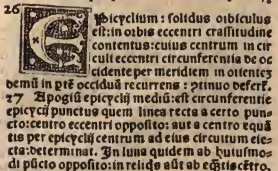 26
Epicyclium: solidus orbiculus
est: in orbis eccentri crassitudine
contentus: cuius centrum in cir
culi eccentri circumferentia de oc
cidente per meridiem in orientez
demū in ptē occiduā recurrens: ꝯtinuo defert.
27 Apogiū epicyclij mediū: est circumferentie
epicycij punctus quem linea recta a certo pun
cto: centro eccentri opposito: aut a centro equā
tis per epicyclij centrum ad eius circuitum eie
cta: determinat. In luna quidem ab huiusmo
di pūcto opposito: in reliqs aūt ab